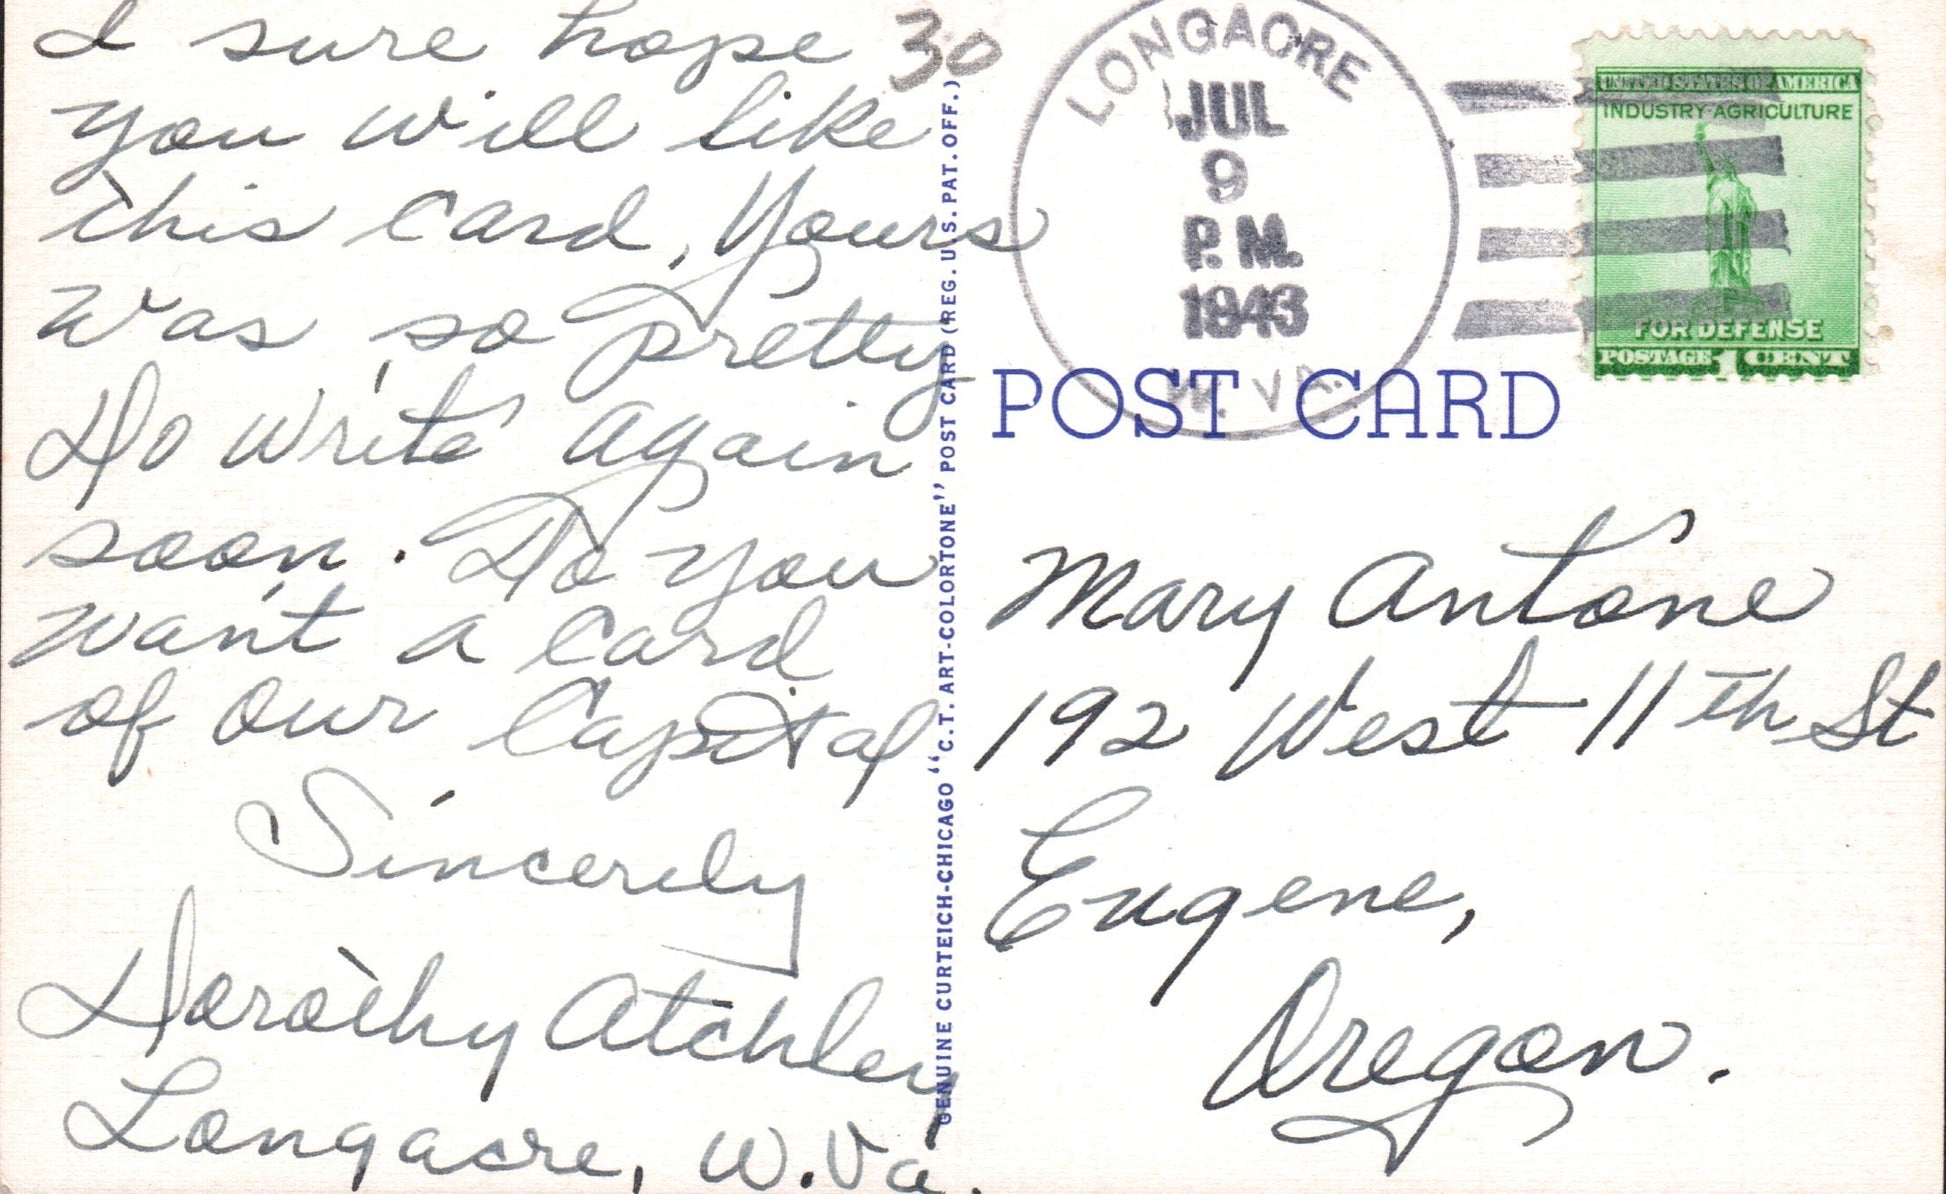 I sure hope
you will like
this card, Yours
was so pretty
Do write again
soon. Do you
want a card
of our Capital
Sincerily
Dorothy Atchley
Longacre, W.Va.
30
GENUINE CURTEICH-CHICAGO "C.T. ART-COLORTONE" POST CARD (REG. U.S. PAT. OFF.)
LONGACRE
JUL
9
P.M.
1943
W. VA.
UNITED STATES OF AMERICA
INDUSTRY·AGRICULTURE
FOR DEFENSE
POSTAGE 1 CENT
POST CARD
Mary Antone
192 West 11th St
Eugene,
Oregon.